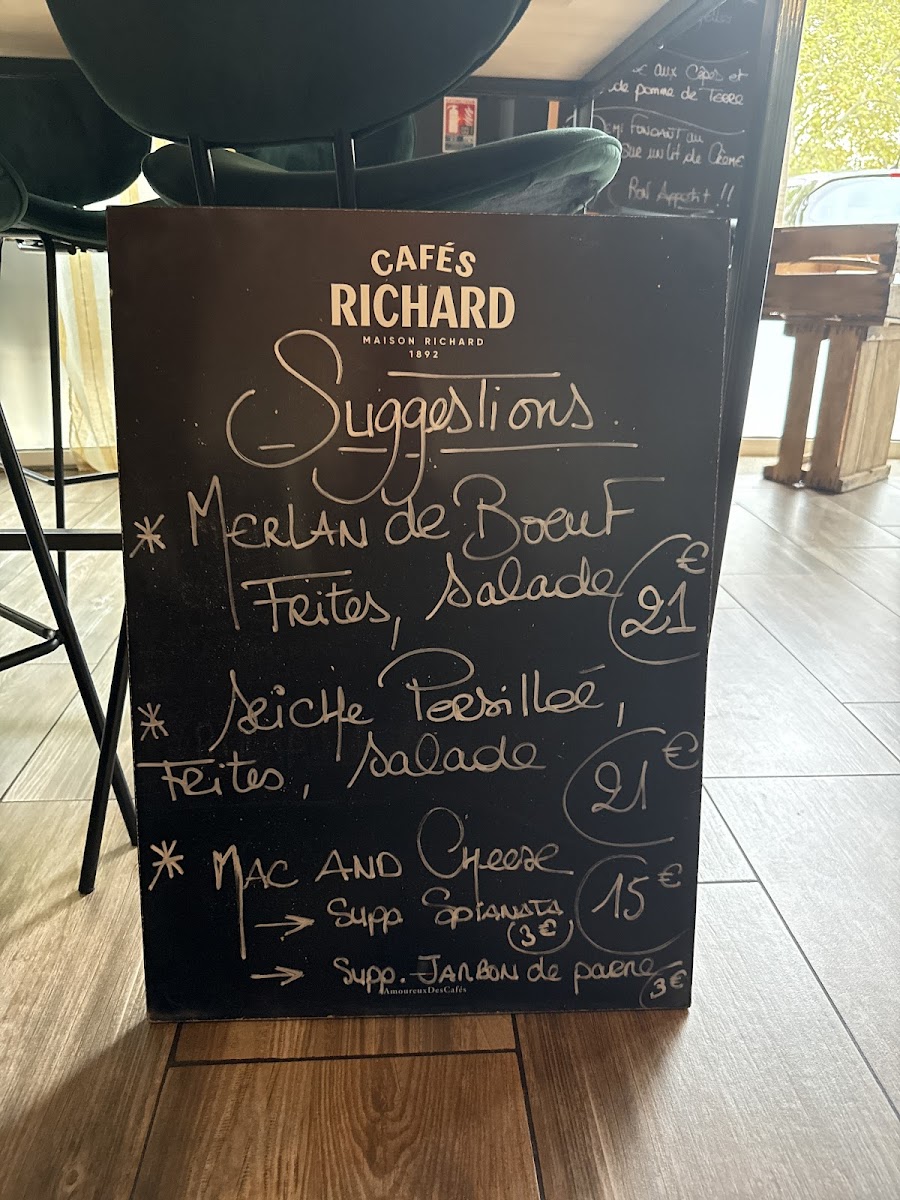 aux Cêpes et
de pomme de Terre
Fondant au
Sur un lit de Crème
Bon Appetit !!
CAFÉS
RICHARD
MAISON RICHARD
1892
Suggestions.
* Merlan de Boeuf
Frites, Salade 21€
* Seiche Persillée,
Frites, Salade 21€
* Mac and Cheese 15€
→ Supp Spianata (3€)
→ Supp. Jambon de parme 3€
AmoureuxDesCafés